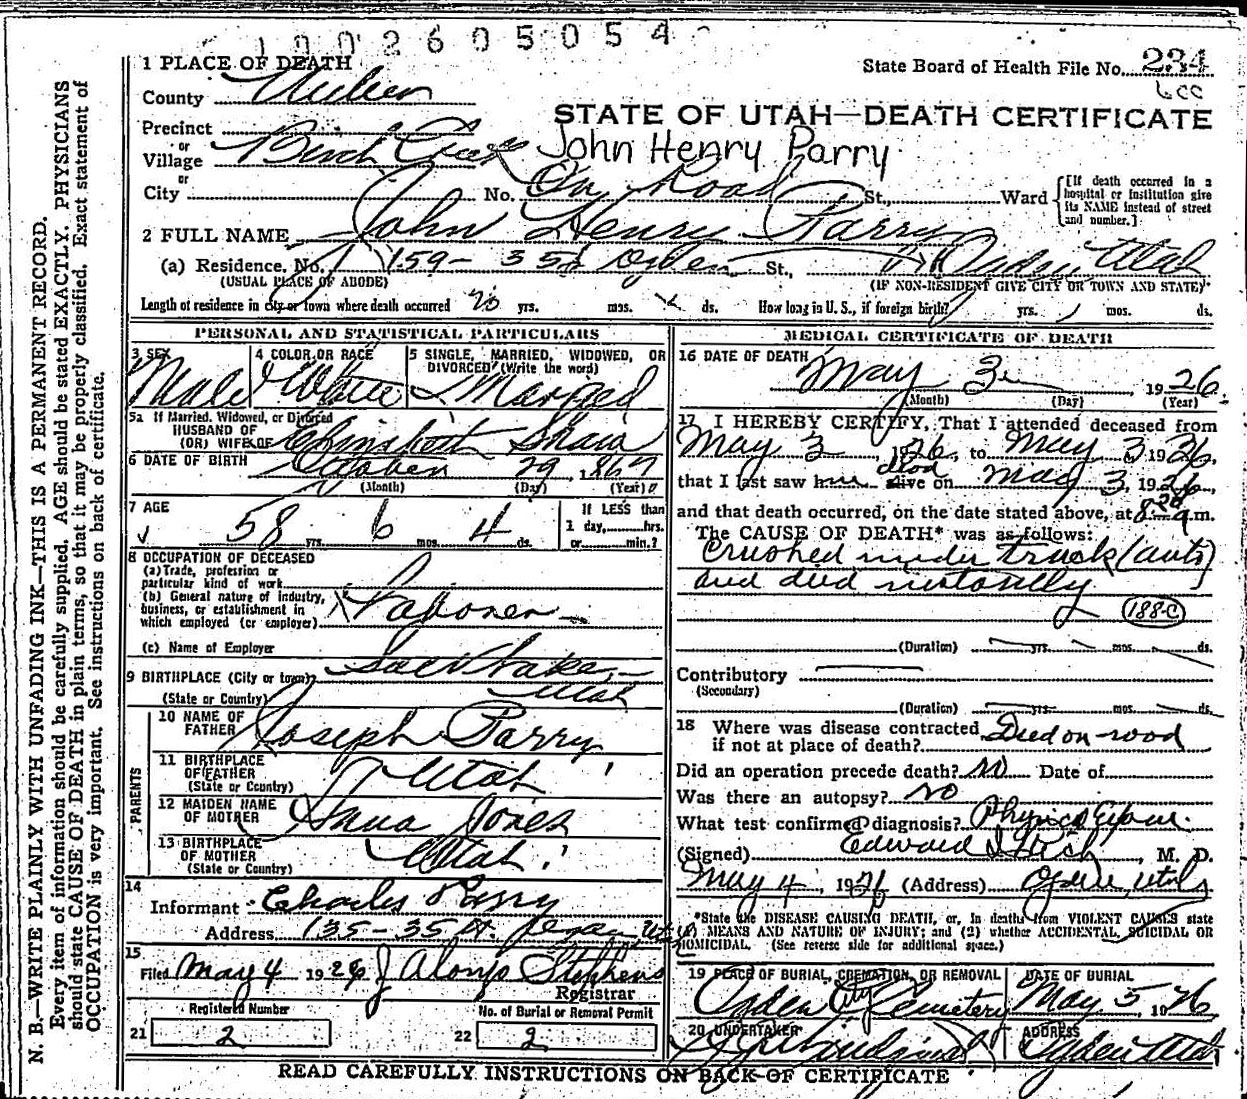 1002605054
1 PLACE OF DEATH
State Board of Health File No. 234
County Weber
STATE OF UTAH—DEATH CERTIFICATE
Precinct
or
Village Birch Creek
John Henry Parry
or
City No. On Road St., Ward
[If death occurred in a hospital or institution give its NAME instead of street and number.]
2 FULL NAME John Henry Parry
(a) Residence, No. 159- 35th Ogden St., Ogden, Utah
(USUAL PLACE OF ABODE) (IF NON-RESIDENT GIVE CITY OR TOWN AND STATE)
Length of residence in city or town where death occurred yrs. mos. ds. How long in U. S., if foreign birth? yrs. mos. ds.
PERSONAL AND STATISTICAL PARTICULARS
3 SEX Male
4 COLOR OR RACE White
5 SINGLE, MARRIED, WIDOWED, OR DIVORCED (Write the word) Married
5a If Married, Widowed, or Divorced
HUSBAND OF
(OR) WIFE OF
6 DATE OF BIRTH October 29, 1867
(Month) (Day) (Year)
7 AGE 58 yrs. 6 mos. 4 ds.
If LESS than
1 day, hrs.
or min.?
8 OCCUPATION OF DECEASED
(a) Trade, profession or
particular kind of work
(b) General nature of industry,
business, or establishment in
which employed (or employer) Laborer
(c) Name of Employer
9 BIRTHPLACE (City or town) Salt Lake,
(State or Country) Utah
PARENTS
10 NAME OF FATHER Joseph Parry
11 BIRTHPLACE OF FATHER (State or Country) Utah
12 MAIDEN NAME OF MOTHER Jones
13 BIRTHPLACE OF MOTHER (State or Country) Utah
14
Informant Charles Parry
Address 135-35 St.
15
Filed May 4 1926 J Alonzo Stephens
Registrar
Registered Number
21 2
No. of Burial or Removal Permit
22 2
MEDICAL CERTIFICATE OF DEATH
16 DATE OF DEATH May 3 1926
(Month) (Day) (Year)
17 I HEREBY CERTIFY, That I attended deceased from
May 3, 1926, to May 3 1926,
that I last saw him dead alive on May 3, 1926,
and that death occurred, on the date stated above, at 8:20 a.m.
The CAUSE OF DEATH* was as follows:
Crushed under truck (auto)
and died instantly
188-C
(Duration) yrs. mos. ds.
Contributory
(Secondary)
(Duration) yrs. mos. ds.
18 Where was disease contracted
if not at place of death? Died on road
Did an operation precede death? No Date of
Was there an autopsy? No
What test confirmed diagnosis? Physical Exam.
(Signed) Edward I Rich, M. D.
May 4, 1926 (Address) Ogden, Utah
*State the DISEASE CAUSING DEATH, or, in deaths from VIOLENT CAUSES state
(1) MEANS AND NATURE OF INJURY; and (2) whether ACCIDENTAL, SUICIDAL OR
HOMICIDAL. (See reverse side for additional space.)
19 PLACE OF BURIAL, CREMATION, OR REMOVAL Ogden City Cemetery
DATE OF BURIAL May 5 1926
20 UNDERTAKER
ADDRESS Ogden Utah
READ CAREFULLY INSTRUCTIONS ON BACK OF CERTIFICATE
N. B.—WRITE PLAINLY WITH UNFADING INK—THIS IS A PERMANENT RECORD.
Every item of information should be carefully supplied. AGE should be stated EXACTLY. PHYSICIANS
should state CAUSE OF DEATH in plain terms, so that it may be properly classified. Exact statement of
OCCUPATION is very important. See instructions on back of certificate.